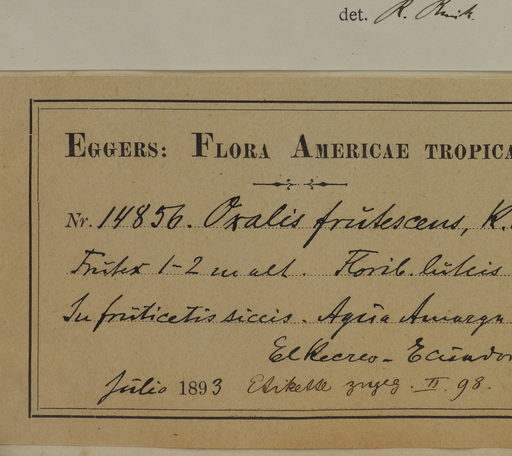 det. R. Knuth
EGGERS: FLORA AMERICAE TROPICA
Nr. 14856. Oxalis frutescens, R.
Frutex 1-2 m alt. Florib. luteis
In fruticetis siccis. Agua Amarga
El Recreo - Ecuador
Julio 1893 Etikette zugeg. II. 98.